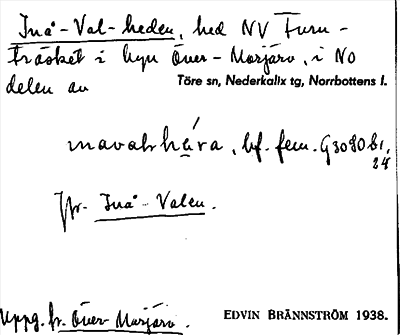 Inå-Val-heden, hed NV Furu-
träsket i byn Över-Morjärv, i NO
delen av Töre sn, Nederkalix tg, Norrbottens l.
bf. fem. G3080b1,
24
Jfr. Inå-Valen.
Uppg. fr. Över-Morjärv. EDVIN BRÄNNSTRÖM 1938.